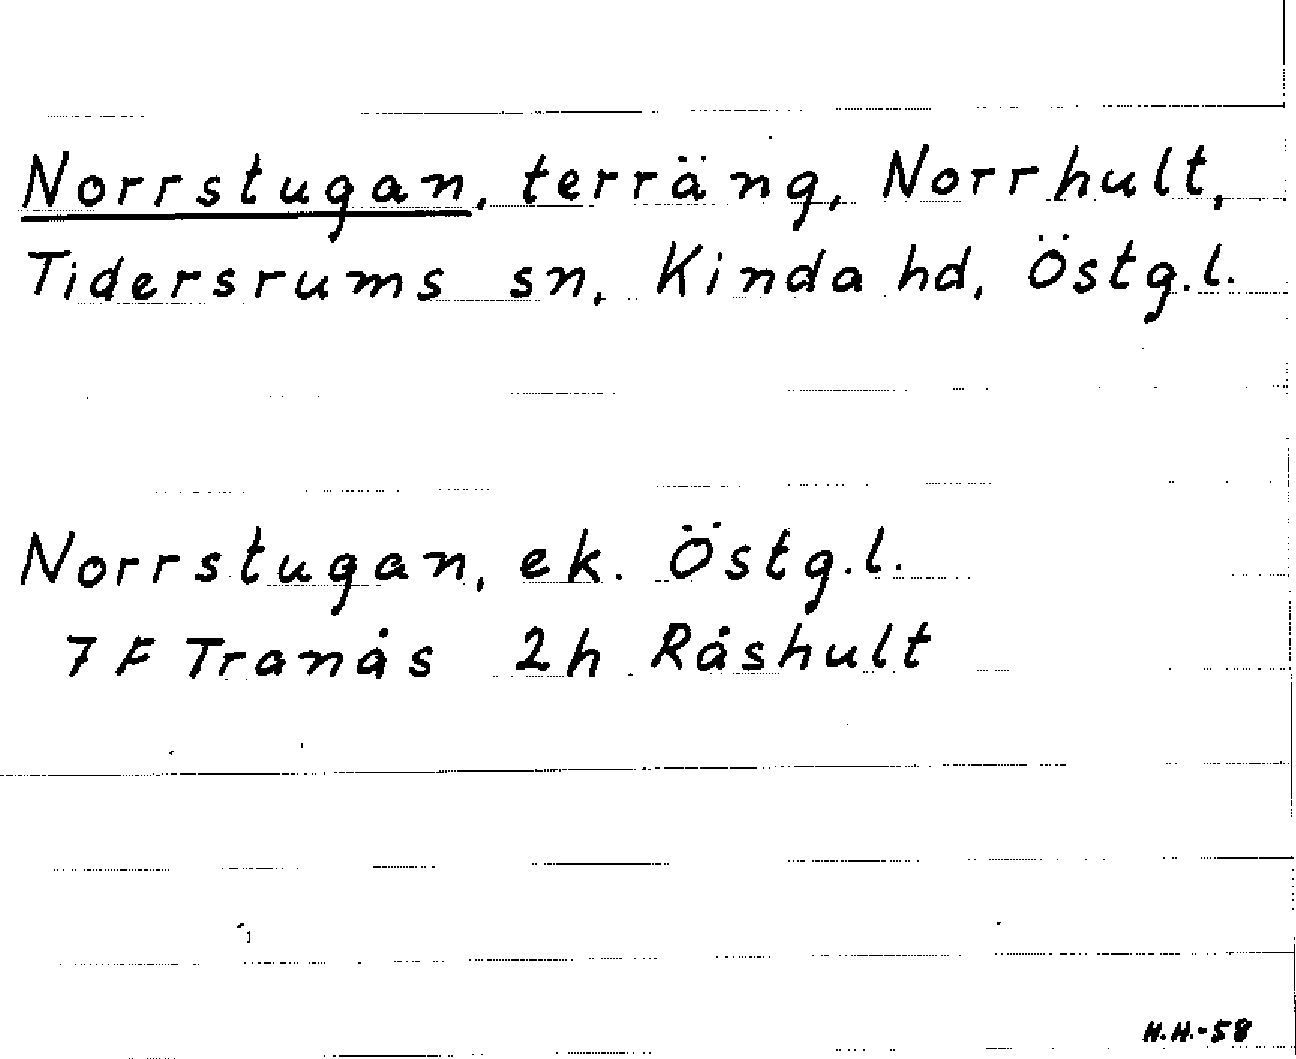 Norrstugan, terräng, Norrhult,
Tidersrums sn, Kinda hd, Östg.l.
Norrstugan, ek. Östg.l.
7 F Tranås 2h Råshult
H.H.-58